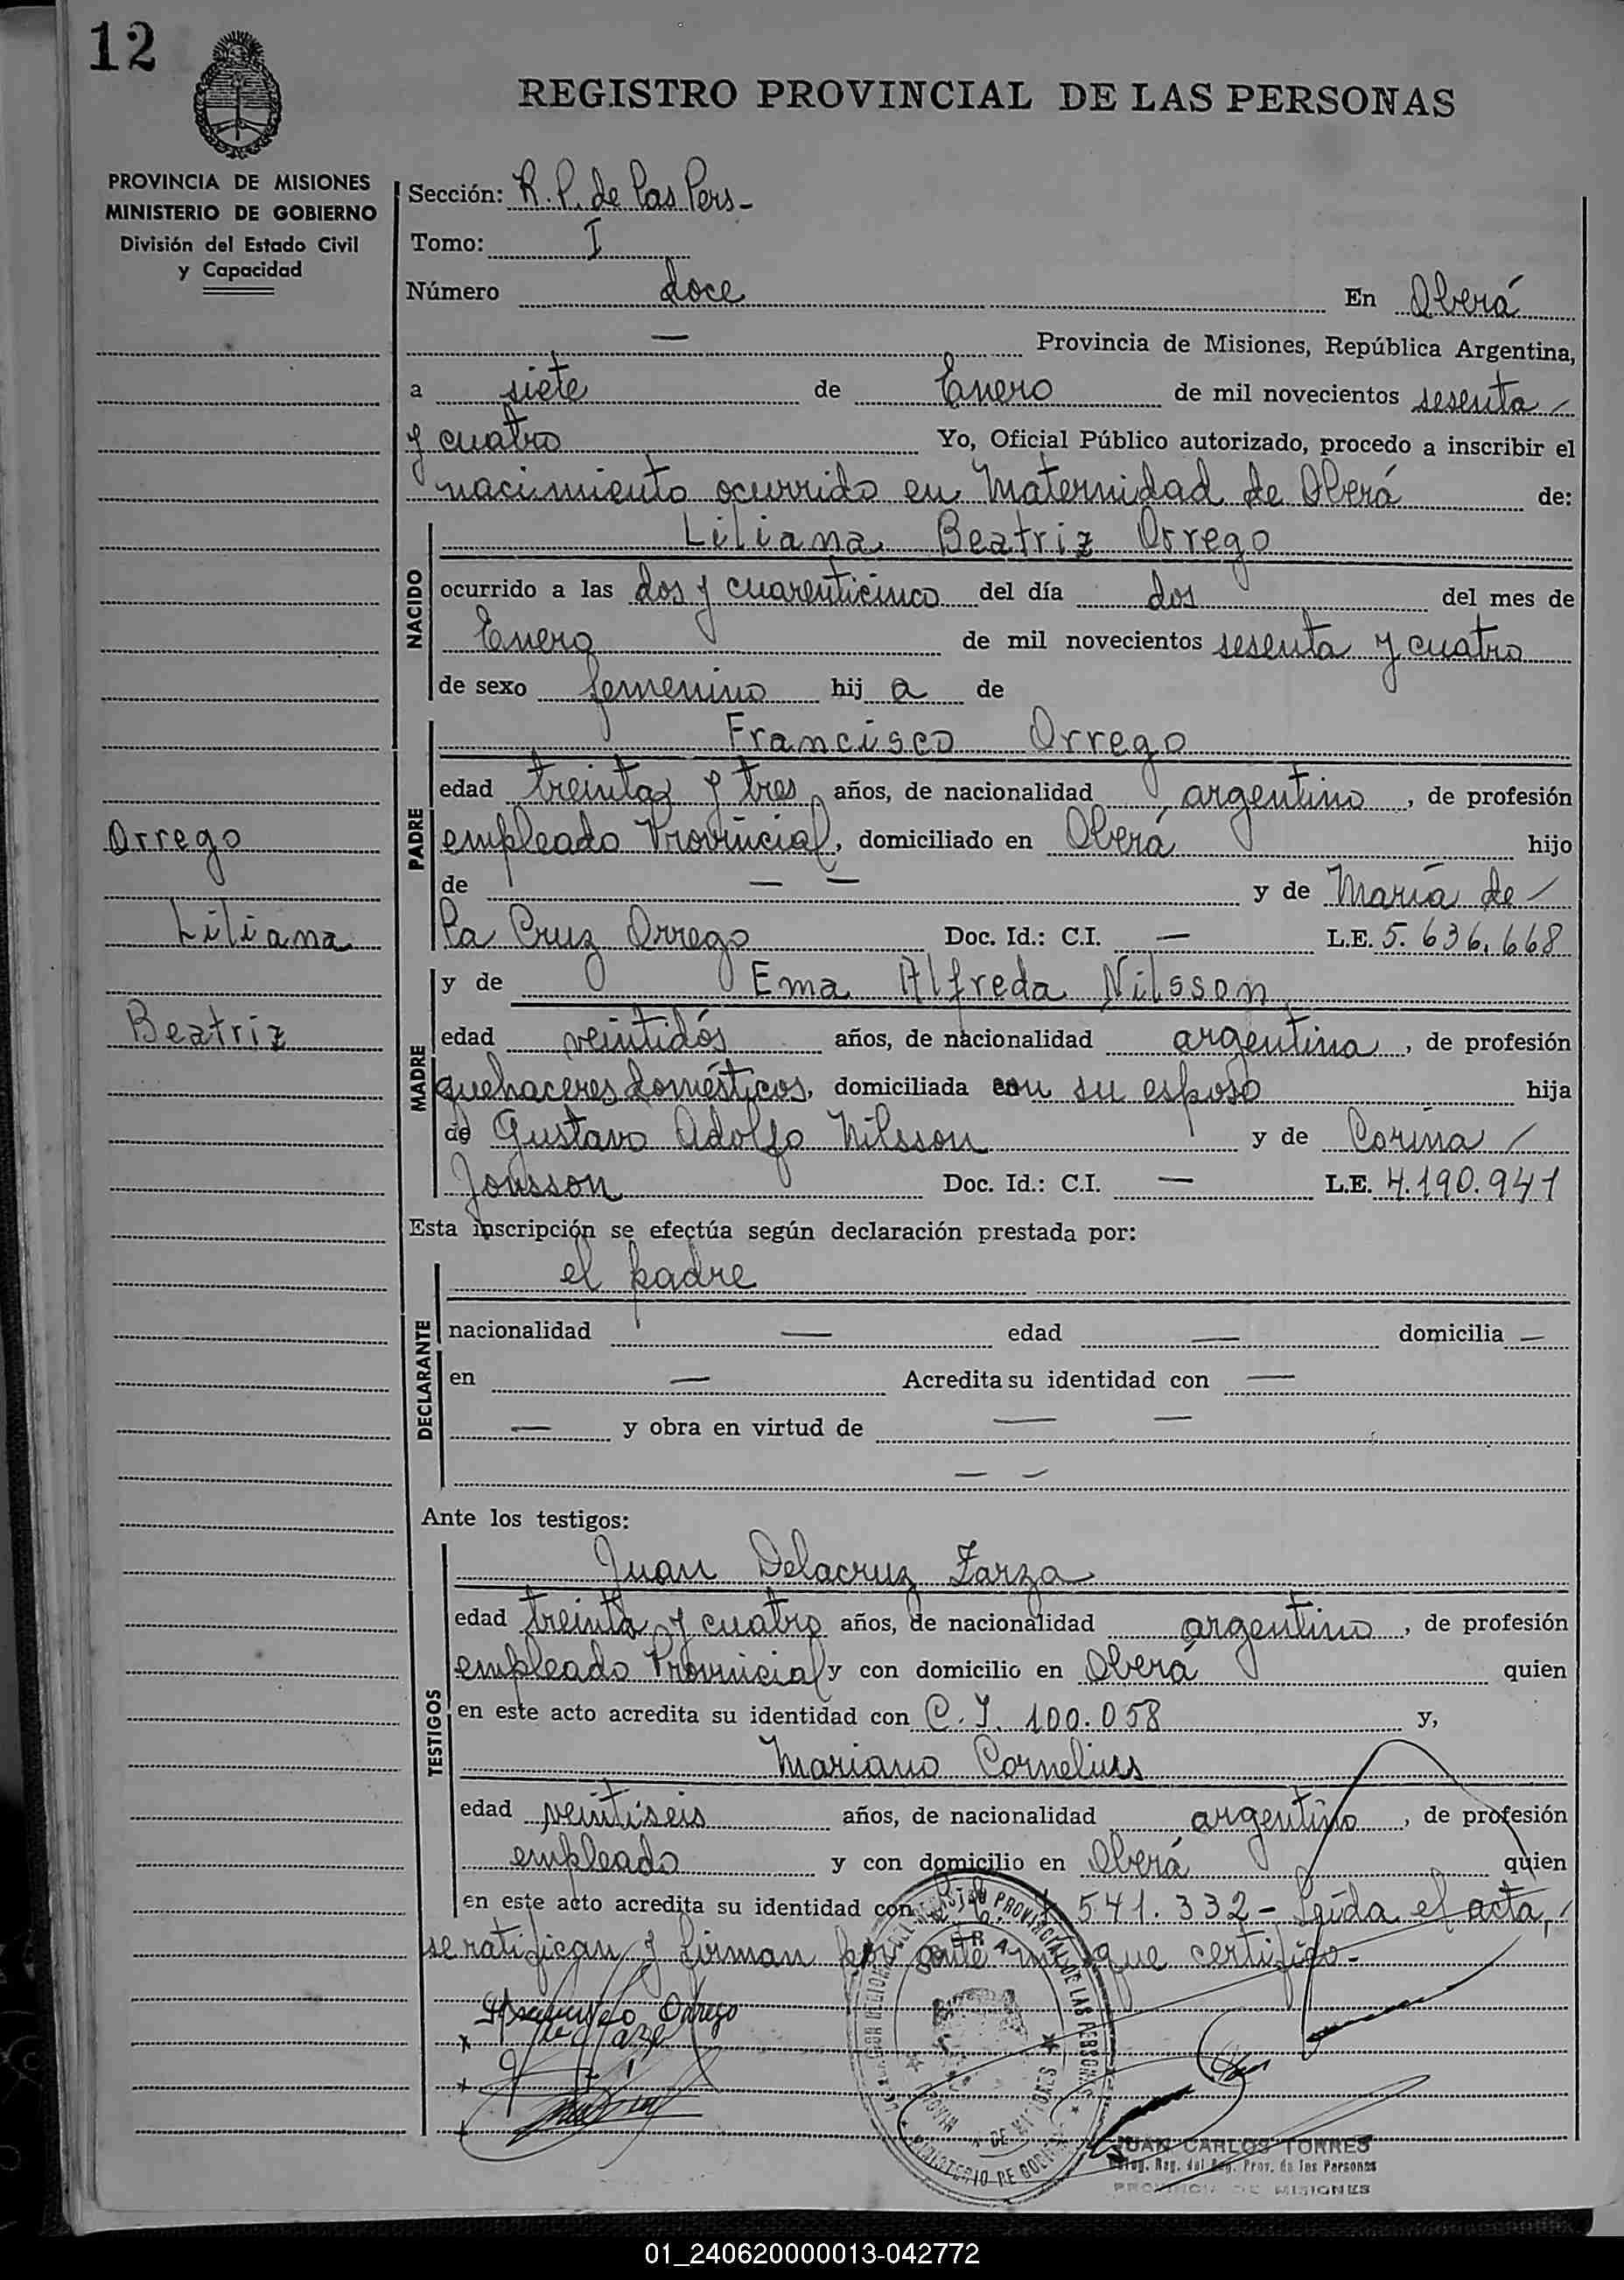 12
REGISTRO PROVINCIAL DE LAS PERSONAS
PROVINCIA DE MISIONES
MINISTERIO DE GOBIERNO
División del Estado Civil
y Capacidad
Sección: R. P. de las Pers-
Tomo: I
Número doce En Oberá
— Provincia de Misiones, República Argentina,
a siete de Enero de mil novecientos sesenta
y cuatro Yo, Oficial Público autorizado, procedo a inscribir el
nacimiento ocurrido en Maternidad de Oberá de:
NACIDO
Liliana Beatriz Orrego
ocurrido a las dos y cuarenticinco del día dos del mes de
Enero de mil novecientos sesenta y cuatro
de sexo femenino hij a de
PADRE
Francisco Orrego
edad treinta y tres años, de nacionalidad argentino, de profesión
empleado Provincial, domiciliado en Oberá hijo
de — — y de María de
la Cruz Orrego Doc. Id.: C.I. — L.E. 5.636.668
Orrego
Liliana
Beatriz
MADRE
y de Ema Alfreda Nilsson
edad veintidós años, de nacionalidad argentina, de profesión
quehaceres domésticos, domiciliada con su esposo hija
de Gustavo Adolfo Nilsson y de Corina
Jonsson Doc. Id.: C.I. — L.E. 4.190.941
Esta inscripción se efectúa según declaración prestada por:
DECLARANTE
el padre
nacionalidad — edad — domicilia —
en — Acredita su identidad con —
— y obra en virtud de — —
— —
Ante los testigos:
TESTIGOS
Juan Delacruz Zarza
edad treinta y cuatro años, de nacionalidad argentino, de profesión
empleado Provincial y con domicilio en Oberá quien
en este acto acredita su identidad con C. I. 100.058 y,
Mariano Cornelius
edad veintiseis años, de nacionalidad argentino, de profesión
empleado y con domicilio en Oberá quien
en este acto acredita su identidad con 541.332- Leída el acta,
se ratifican y firman por ante mí que certifico-
Orrego
PROVINCIAL DE LAS PERSONAS
MINISTERIO DE GOBIERNO
JUAN CARLOS TORRES
Prov. de las Personas
PROVINCIA DE MISIONES
01_240620000013-042772